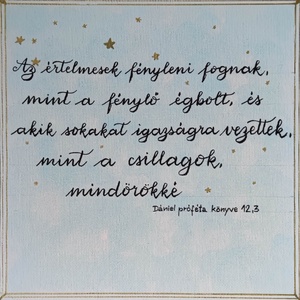 Az értelmesek fényleni fognak,
mint a fénylő égbolt, és
akik sokakat igazságra vezettek,
mint a csillagok,
mindörökké
Dániel próféta könyve 12,3